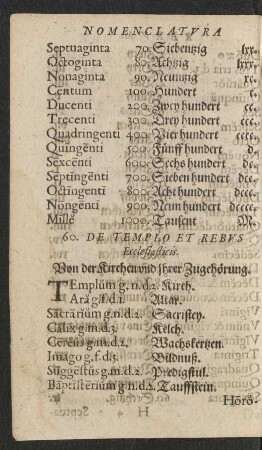 NOMENCLATVRA
Septuaginta 70. Siebentzig lxx.
Octoginta 80. Achtzig lxxx.
Nonaginta 90. Neuntzig xc.
Centum 100. Hundert c.
Ducenti 200. Zwey hundert cc.
Trecenti 300. Drey hundert ccc.
Quadringenti 400. Vier hundert cccc.
Quingēti 500. Fünff hundert d.
Sexcēti 600. Sechs hundert dc.
Septīngēti 700. Sieben hundert dcc.
Octīngēti 800. Acht hundert dccc.
Nongēti 900. Neun hundert dcccc.
Mille 1000. Tausent M.
60. DE TEMPLO ET REBVS
Ecclesiasticis.
Von der Kirchen vnd jhrer Zugehörung.
TEmplūm g.n.d.2. Kirch.
Ară g.f.d.1. Altar.
Sacrāriūm g.n.d.2. Sacristey.
Călix g.m.d.3. Kelch.
Cēreŭs g.m.d.2. Wachskertzen.
Imago g.f.d.3. Bildnuß.
Sŭggestŭs g.m.d.4. Predigstul.
Băptistēriŭm g.n.d.2. Tauffstein.
Hōrō-
H 4